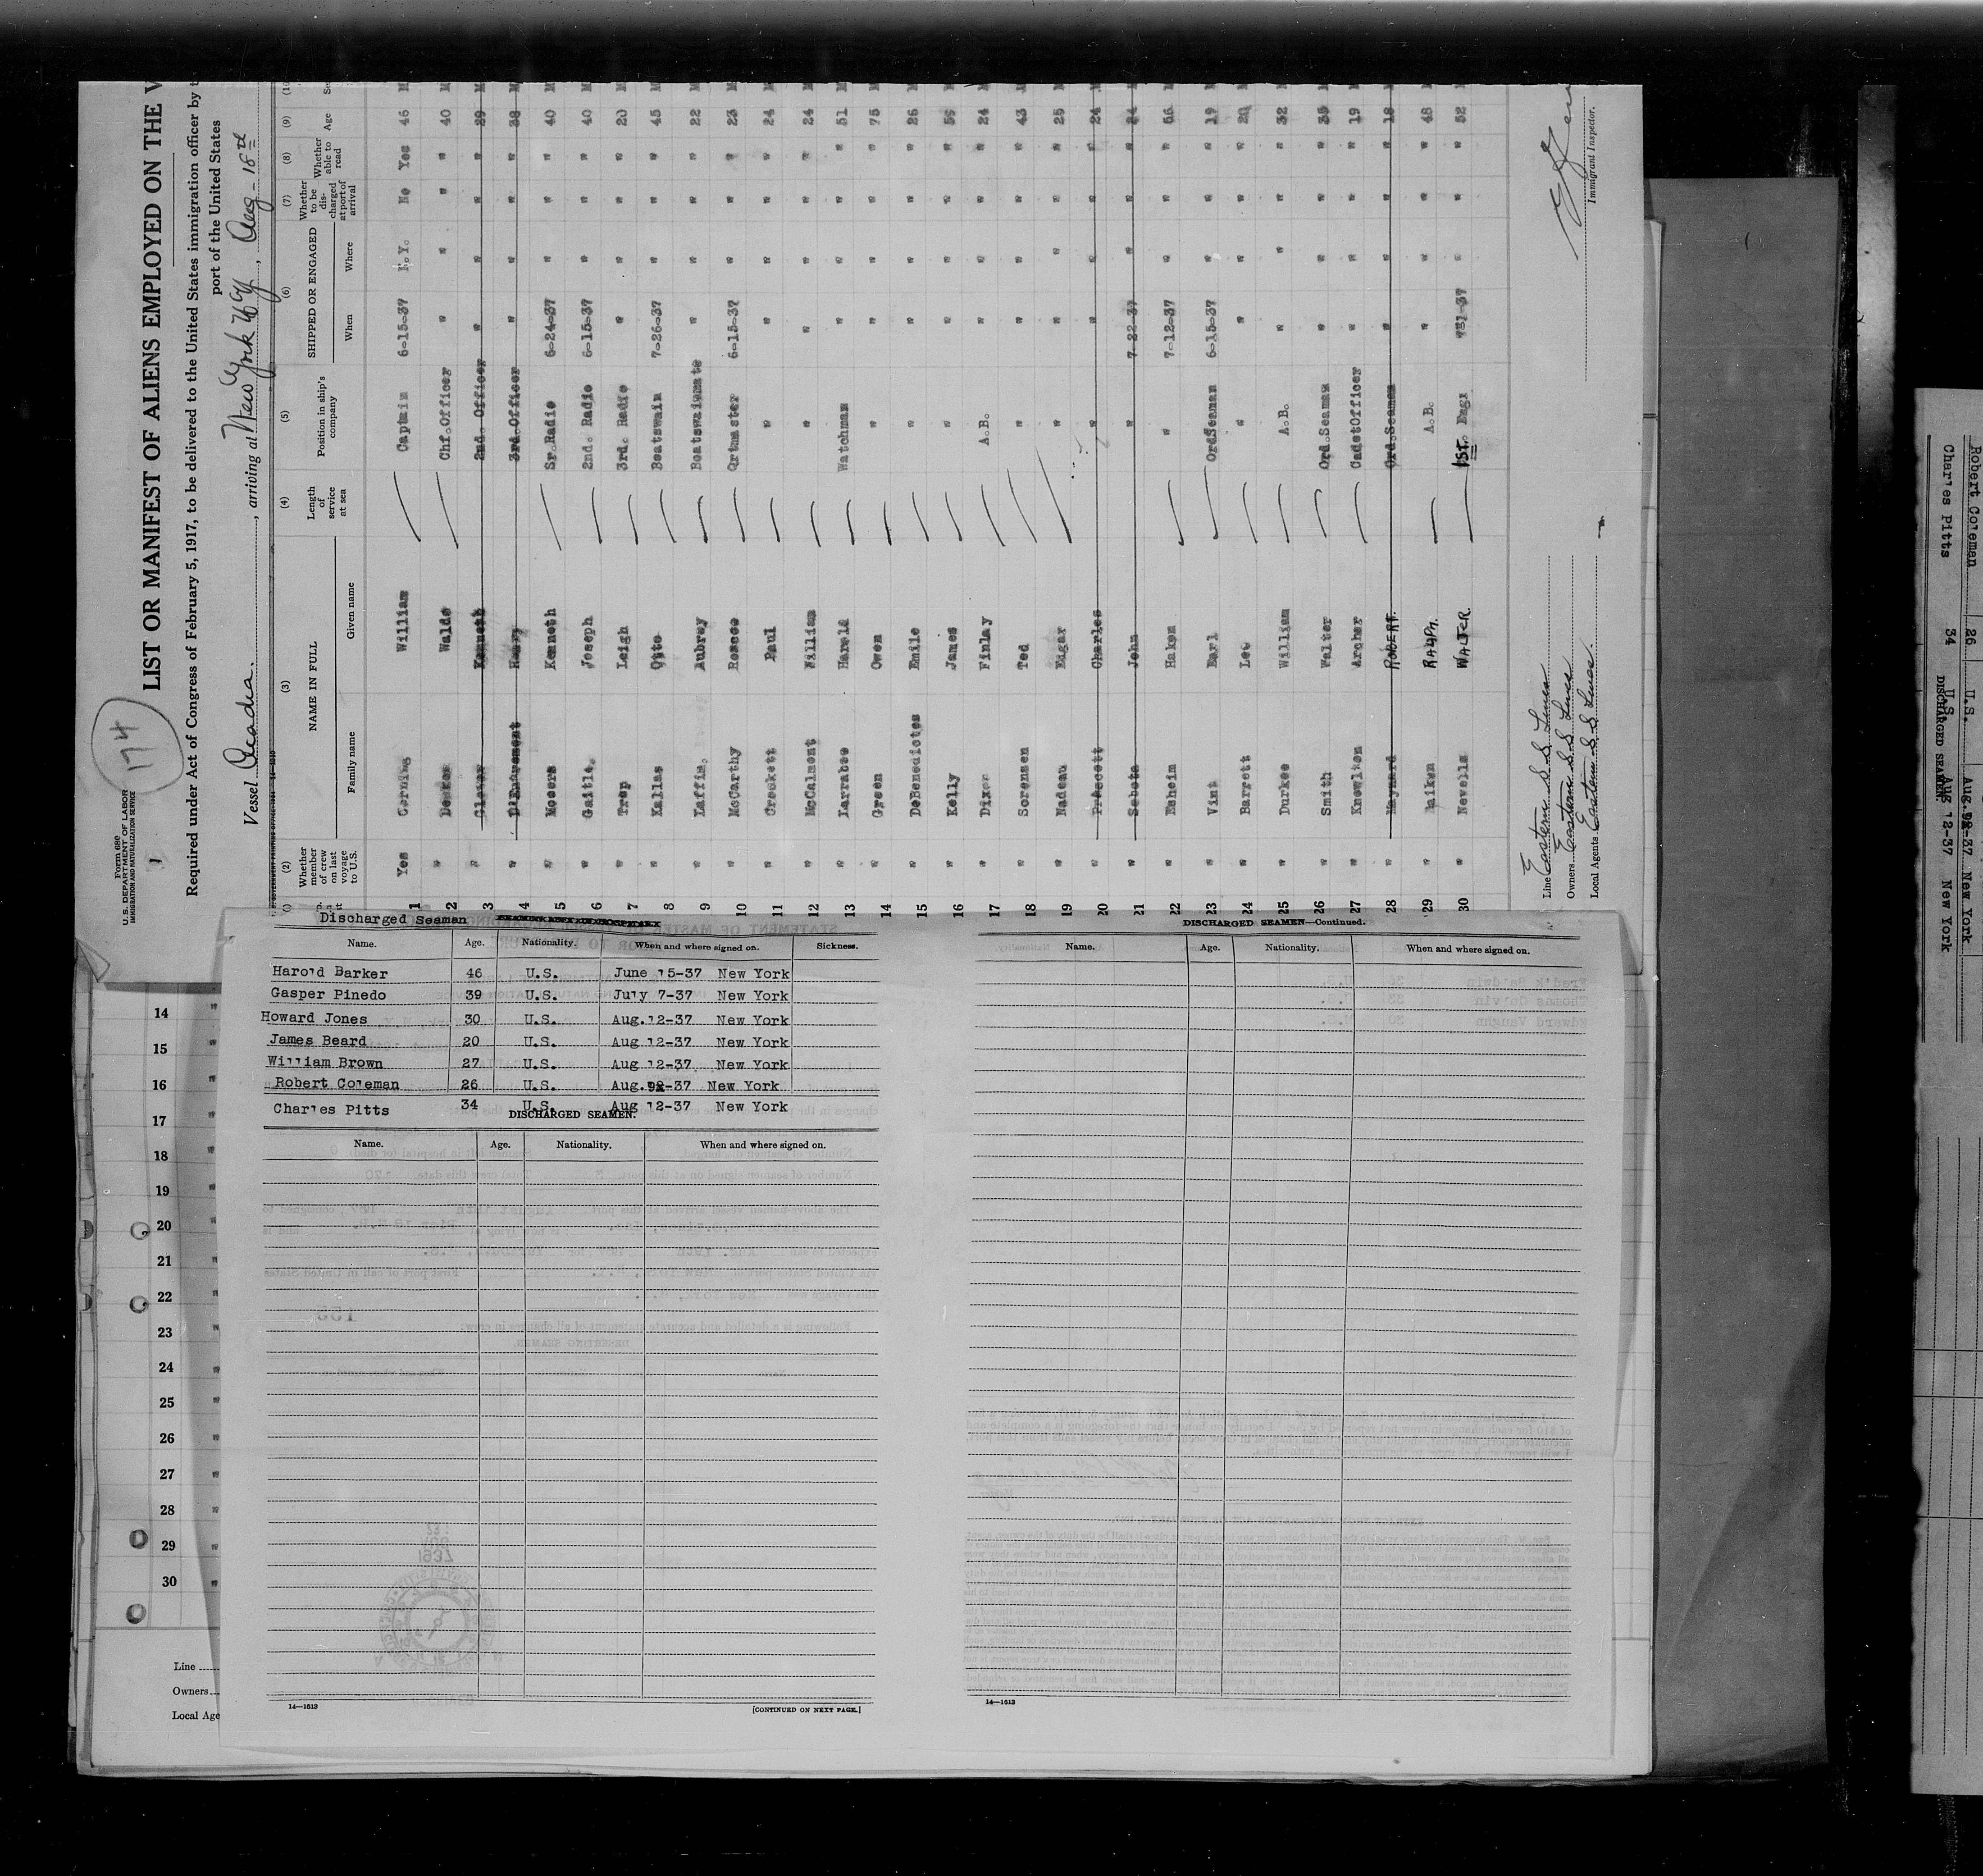 Form 680
U.S. DEPARTMENT OF LABOR
IMMIGRATION AND NATURALIZATION SERVICE
174
LIST OR MANIFEST OF ALIENS EMPLOYED ON THE V
Required under Act of Congress of February 5, 1917, to be delivered to the United States immigration officer by t
port of the United States
Vessel Acadia., arriving at New York NY, Aug-18th
(2) (3) (4) (5) (6) (7) (8) (9)
Whether member of crew on last voyage to U.S. NAME IN FULL Length of service at sea Position in ship's company SHIPPED OR ENGAGED Whether to be discharged at port of arrival Whether able to read Age
Family name Given name When Where
1 Yes Corning William Captain 6-15-37 N.Y. No Yes 46 M
2 " Waldo Chf.Officer " " " " 40 M
3 " Kenneth 2nd. Officer " " " " 29 M
4 " Henry 3rd.Officer " " " " 38 M
5 " Mosers Kenneth Sr.Radio 6-24-37 " " " 40 M
6 " Joseph 2nd. Radio 6-15-37 " " " 40 M
7 " Leigh 3rd. Radio " " " " 20 M
8 " Kallas Otto Boatswain 7-26-37 " " " 45 M
9 " Laffin. Aubrey Boatswainmate " " " " 22 M
10 " McCarthy Roscoe Qrtmaster 6-15-37 " " " 23 M
11 " Crockett Paul " " " " " 24 M
12 " McCalmont William " " " " " 24 M
13 " Larrabee Harold Watchman " " " " 51 M
14 " Green Owen " " " " " 75 M
15 " DeBenedictes Emile " " " " " 26 M
16 " Kelly James " " " " " 59 M
17 " Dixon Finlay A.B. " " " " 24 M
18 " Sorensen Ted " " " " " 43 M
19 " Nadeau Edgar " " " " " 25 M
20 " Prescott Charles " " " " " 24 M
21 " Sabota John " 7-22-37 " " " 24 M
22 " Esheim Hakon " 7-12-37 " " " 66 M
23 " Vint Earl OrdSeaman 6-15-37 " " " 19 M
24 " Barrett Leo " " " " "
25 " Durkee William A.B. " " " " 32 M
26 " Smith Walter Ord.Seaman " " " "
27 " Knowlton Archer CadetOfficer " " " " 19 M
28 " Maynard ROBERT. Ord.Seaman " " " " 18 M
29 " RALPH. A.B. " " " " 48 M
30 " Nevells WALTER 1ST. Engr 7-1-37 " " " 52 M
Line Eastern S.S. Lines
Owners Eastern S.S Lines
Local Agents Eastern S.S Lines.
Immigrant Inspector.
Discharged Seaman
Name. Age. Nationality. When and where signed on. Sickness.
Harold Barker 46 U.S. June 15-37 New York
Gasper Pinedo 39 U.S. July 7-37 New York
Howard Jones 30 U.S. Aug.12-37 New York
James Beard 20 U.S. Aug 12-37 New York
William Brown 27 U.S. Aug 12-37 New York
Robert Coleman 26 U.S. Aug. -37 New York
Charles Pitts 34 U.S. Aug 12-37 New York
DISCHARGED SEAMEN.
Name. Age. Nationality. When and where signed on.
14—1613 [CONTINUED ON NEXT PAGE.]
DISCHARGED SEAMEN—Continued.
Name. Age. Nationality. When and where signed on.
14—1613
14
15
16
17
18
19
20
21
22
23
24
25
26
27
28
29
30
Line
Owners
Local Age
Robert Coleman 26 U.S. Aug. -37 New York
Charles Pitts 34 U.S. Aug 12-37 New York
DISCHARGED SEAMEN